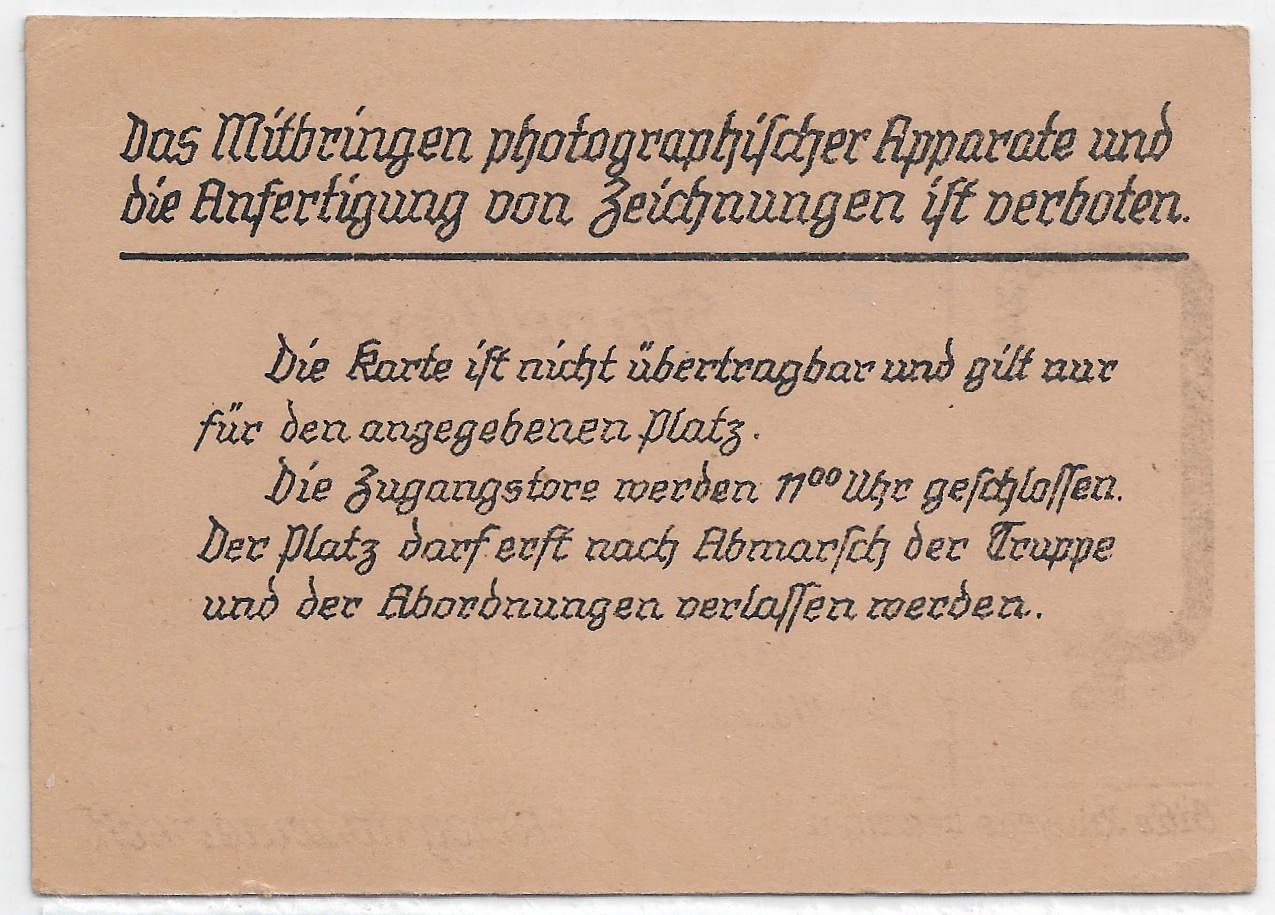 Das Mitbringen photographischer Apparate und
die Anfertigung von Zeichnungen ist verboten.
Die Karte ist nicht übertragbar und gilt nur
für den angegebenen Platz.
Die Zugangstore werden 11⁰⁰ Uhr geschlossen.
Der Platz darf erst nach Abmarsch der Truppe
und der Abordnungen verlassen werden.